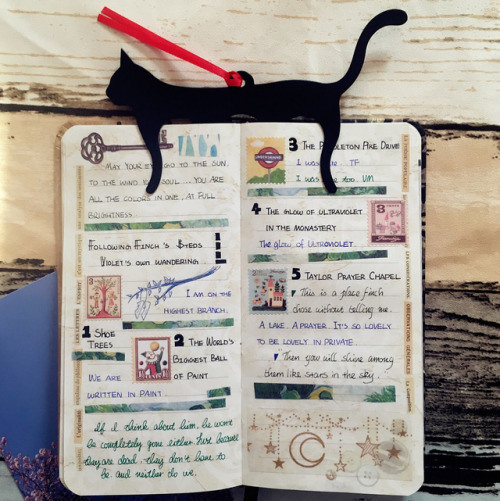 MAY YOUR EYE GO TO THE SUN,
TO THE WIND SOUL ... YOU ARE
ALL THE COLORS IN ONE, AT FULL
BRIGHTNESS
FOLLOWING FINCH'S STEPS
VIOLET'S OWN WANDERING.
I AM ON THE
HIGHEST BRANCH.
1 SHOE
TREES
2 THE WORLD'S
BIGGEST BALL
OF PAINT
WE ARE
WRITTEN IN PAINT.
If I think about him, he won't
be completely gone either. Just because
they are dead, they don't have to
be. and neither do we.
3 THE PENDLETON AXE DRIVE
I was TF
I was too. VM
4 THE GLOW OF ULTRAVIOLET
IN THE MONASTERY
The glow of ULTRAVIOLET
5 TAYLOR PRAYER CHAPEL
This is a place finch
chose without telling me.
A LAKE. A PRAYER. IT'S SO LOVELY
TO BE LOVELY IN PRIVATE.
Then you will shine among
them like stars in the sky.